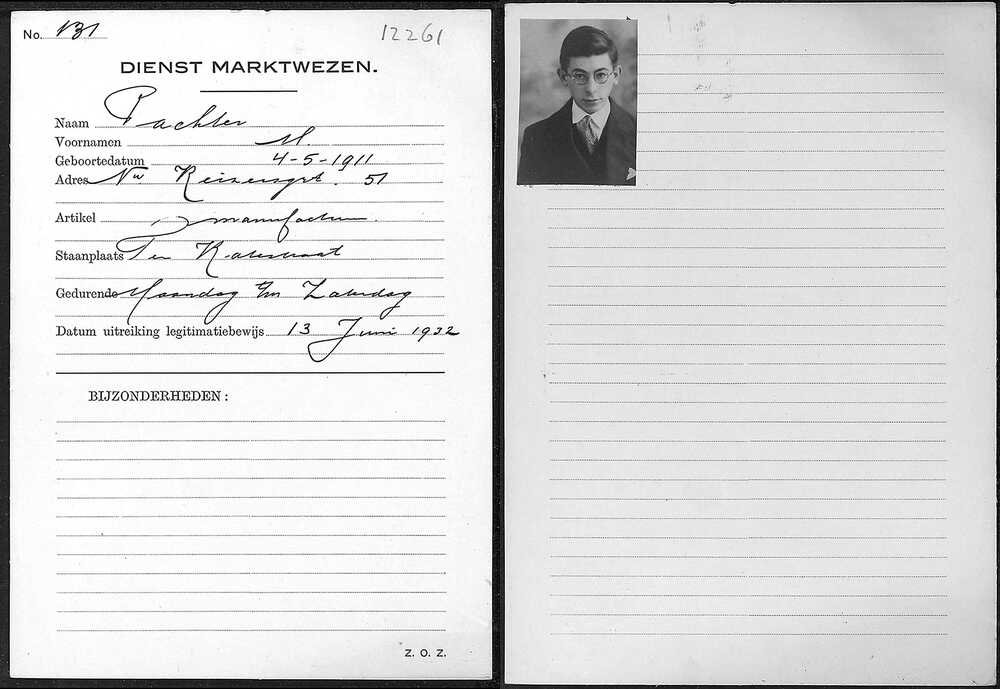 No. 131
12261
DIENST MARKTWEZEN.
Naam Pachter
Voornamen M.
Geboortedatum 4-5-1911
Adres Nw Keizersgrt. 51
Artikel manufacturen.
Staanplaats Ten Katestraat
Gedurende Maandag t/m Zaterdag
Datum uitreiking legitimatiebewijs 13 Juni 1932
BIJZONDERHEDEN:
Z. O. Z.